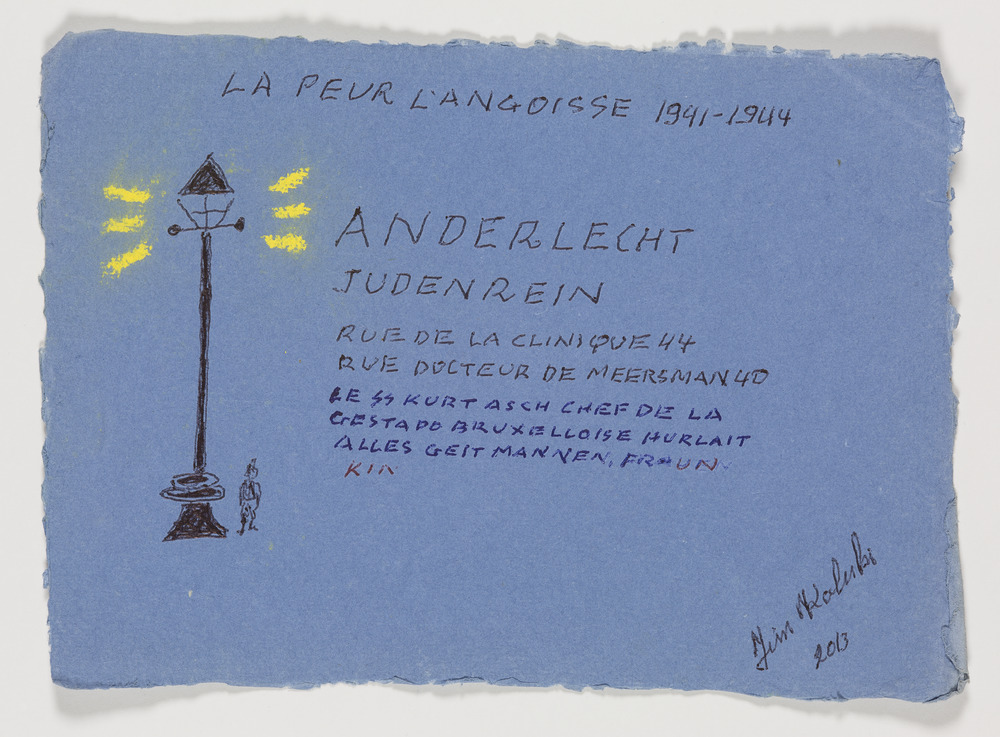 LA PEUR L'ANGOISSE 1941-1944
ANDERLECHT
JUDENREIN
RUE DE LA CLINIQUE 44
RUE DOCTEUR DE MEERSMAN 40
LE SS KURT ASCH CHEF DE LA
GESTAPO BRUXELLOISE HURLAIT
ALLES GEIT MANNEN, FRAUN
KIN
2013